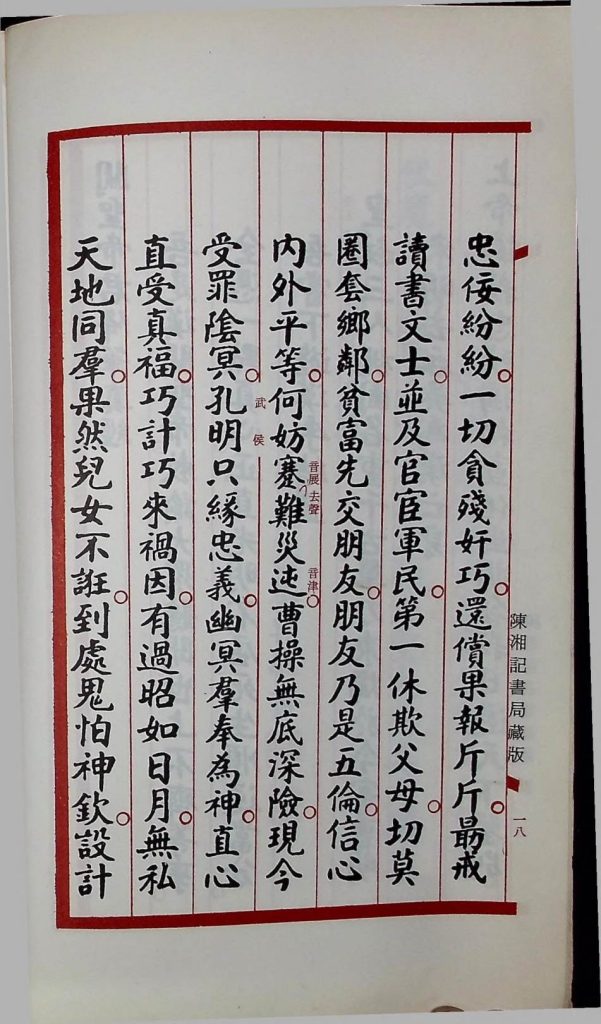 忠佞紛紛一切貪殘奸巧還償果報斤斤勗戒
讀書文士並及官宦軍民第一休欺父母切莫
圈套鄉鄰貧富先交朋友朋友乃是五倫信心
內外平等何妨蹇難災迍曹操無底深險現今
音展 去聲 音津
受罪陰冥孔明只緣忠義幽冥羣奉為神直心
武侯
直受真福巧計巧來禍因有過昭如日月無私
天地同羣果然兒女不誑到處鬼怕神欽設計
陳湘記書局藏版 一八